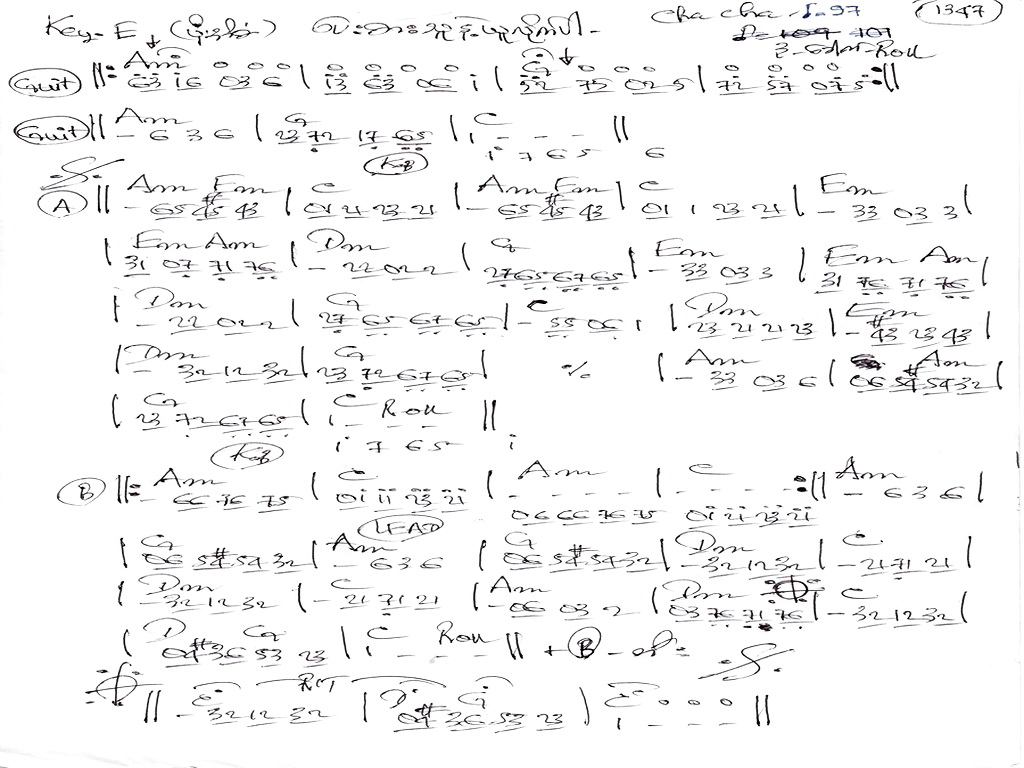 Key-E (မိုးခါး) Cha cha ♩=97 1347
107
3-သံစုံ-Roll
Guit ||: Am 63 i6 036 | i3 63 06 i | G 52 75 025 | 72 57 075 :||
Guit || Am - 6 3 6 | G 23 72 17 65 | C i - - - ||
i 7 6 5 6
Kb
A || Am Em - 65 #45 43 | C 01 21 23 21 | Am Em - 65 #45 43 | C 01 1 23 21 | Em - 33 03 3 |
| Em Am 31 07 71 76 | Dm - 22 02 2 | G 27 65 67 65 | Em - 33 03 3 | Em Am 31 76 71 76 |
| Dm - 22 02 2 | G 27 65 67 65 | C - 55 06 1 | Dm 23 21 21 23 | Em - #43 23 43 |
| Dm - 32 12 32 | G 23 72 67 65 | ٪ | Am - 33 03 6 | Am 06 5#4 54 32 |
| G 23 72 67 65 | C Roll 1 - - - ||
i 7 6 5 i
Kb
B ||: Am - 66 76 75 | C 0i ii 23 2i | Am - - - - | C - - - - :|| Am - 6 3 6 |
06 66 76 75 0i 2i 23 2i
LEAD
| G 06 5#4 54 32 | Am - 6 3 6 | G 06 5#4 54 32 | Dm - 32 12 32 | C - 21 71 21 |
| Dm - 32 12 32 | C - 21 71 21 | Am - 06 03 2 | Dm 03 76 71 76 | C - 32 12 32 |
| D G 0#4 36 53 23 | C Roll 1 - - - || + B
RIT
|| C - 32 12 32 | D G 0#4 36 53 23 | C 1 - - - ||